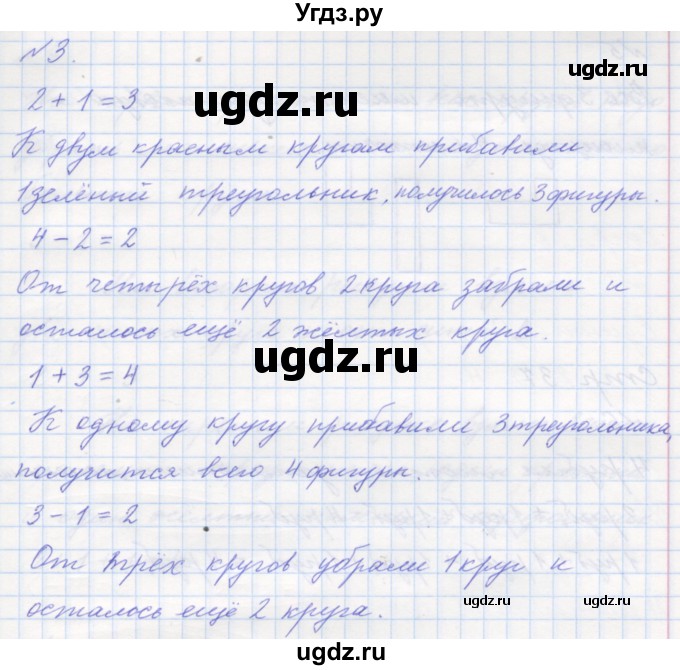 Угдз.ру
№3.
2 + 1 = 3
ugdz.ru
ugdz.ru
К двум красным кругам прибавили
1 зелёный треугольник, получилось 3 фигуры.
4 - 2 = 2
От четырёх кругов 2 круга забрали и
осталось ещё 2 жёлтых круга.
ugdz.ru
1 + 3 = 4
К одному кругу прибавили 3 треугольника,
получится всего 4 фигуры.
3 - 1 = 2
От трёх кругов убрали 1 круг и
осталось ещё 2 круга.
ugdz.ru
ugdz.ru
ugdz.ru